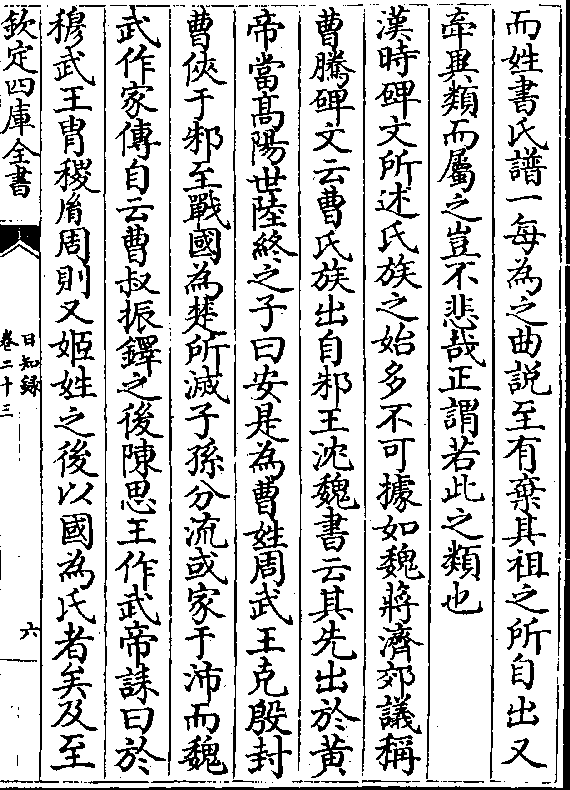 而姓書氏譜一每為之曲説至有棄其祖之所自出又
牽異類而屬之豈不悲哉正謂若此之類也
漢時碑文所述氏族之始多不可據如魏蔣濟郊議稱
曹騰碑文云曹氏族出自邾王沈魏書云其先出於黃
帝當髙陽世陸終之子曰安是為曹姓周武王克殷封
曹俠于邾至戰國為楚所滅子孫分流或家于沛而魏
武作家傳自云曹叔振鐸之後陳思王作武帝誄曰於
穆武王胄稷胤周則又姬姓之後以國為氏者矣及至
欽定四庫全書
日知錄
卷二十三
六